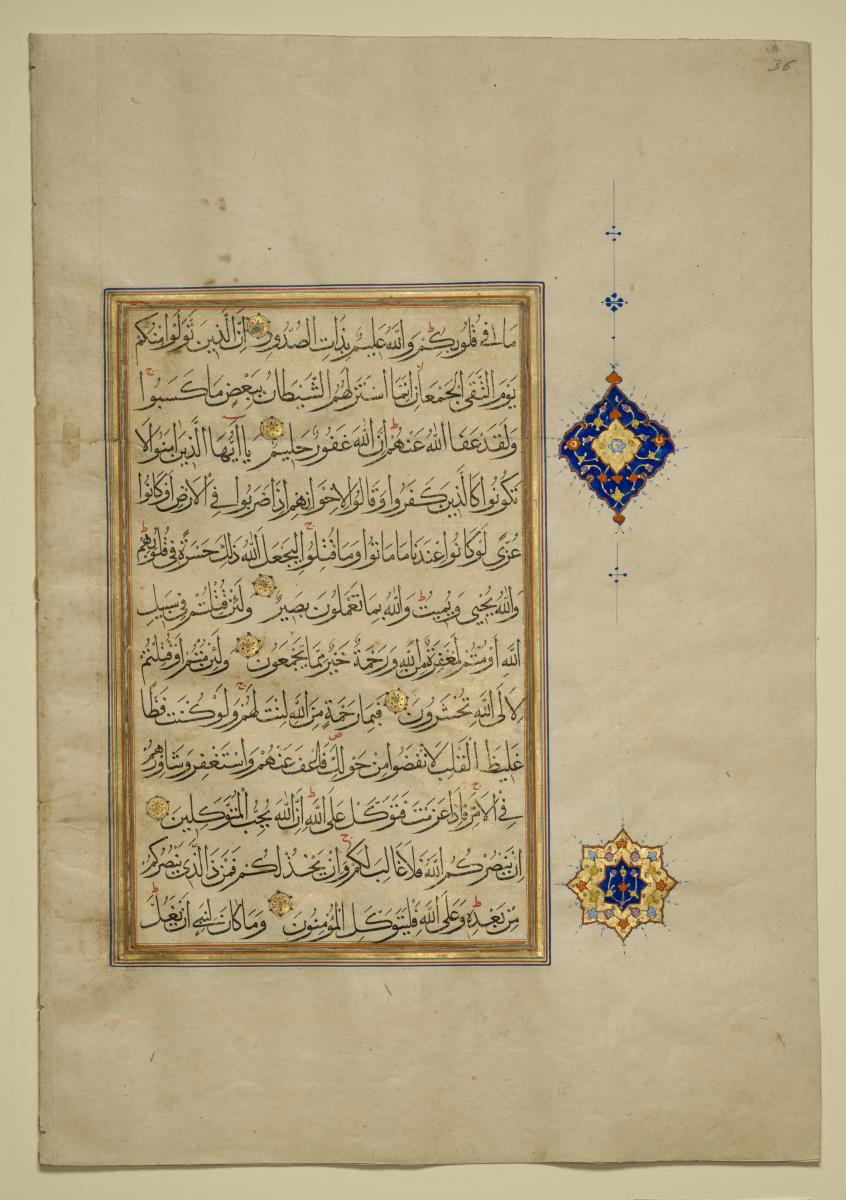 36
ما في قُلُوبِكُمْ وَاللَّهُ عَلِيمٌ بِذَاتِ الصُّدُورِ إِنَّ الَّذِينَ تَوَلَّوْا مِنْكُمْ
يَوْمَ الْتَقَى الْجَمْعَانِ إِنَّمَا اسْتَزَلَّهُمُ الشَّيْطَانُ بِبَعْضِ مَا كَسَبُوا
وَلَقَدْ عَفَا اللَّهُ عَنْهُمْ إِنَّ اللَّهَ غَفُورٌ حَلِيمٌ يَا أَيُّهَا الَّذِينَ آمَنُوا لَا
تَكُونُوا كَالَّذِينَ كَفَرُوا وَقَالُوا لِإِخْوَانِهِمْ إِذَا ضَرَبُوا فِي الْأَرْضِ أَوْ كَانُوا
غُزًّى لَوْ كَانُوا عِنْدَنَا مَا مَاتُوا وَمَا قُتِلُوا لِيَجْعَلَ اللَّهُ ذَلِكَ حَسْرَةً فِي قُلُوبِهِمْ
وَاللَّهُ يُحْيِي وَيُمِيتُ وَاللَّهُ بِمَا تَعْمَلُونَ بَصِيرٌ وَلَئِنْ قُتِلْتُمْ فِي سَبِيلِ
اللَّهِ أَوْ مُتُّمْ لَمَغْفِرَةٌ مِنَ اللَّهِ وَرَحْمَةٌ خَيْرٌ مِمَّا يَجْمَعُونَ وَلَئِنْ مُتُّمْ أَوْ قُتِلْتُمْ
لَإِلَى اللَّهِ تُحْشَرُونَ فَبِمَا رَحْمَةٍ مِنَ اللَّهِ لِنْتَ لَهُمْ وَلَوْ كُنْتَ فَظًّا
غَلِيظَ الْقَلْبِ لَانْفَضُّوا مِنْ حَوْلِكَ فَاعْفُ عَنْهُمْ وَاسْتَغْفِرْ وَشَاوِرْهُمْ
فِي الْأَمْرِ فَإِذَا عَزَمْتَ فَتَوَكَّلْ عَلَى اللَّهِ إِنَّ اللَّهَ يُحِبُّ الْمُتَوَكِّلِينَ
إِنْ يَنْصُرْكُمُ اللَّهُ فَلَا غَالِبَ لَكُمْ وَإِنْ يَخْذُلْكُمْ فَمَنْ ذَا الَّذِي يَنْصُرُكُمْ
مِنْ بَعْدِهِ وَعَلَى اللَّهِ فَلْيَتَوَكَّلِ الْمُؤْمِنُونَ وَمَا كَانَ لِنَبِيٍّ أَنْ يَغُلَّ